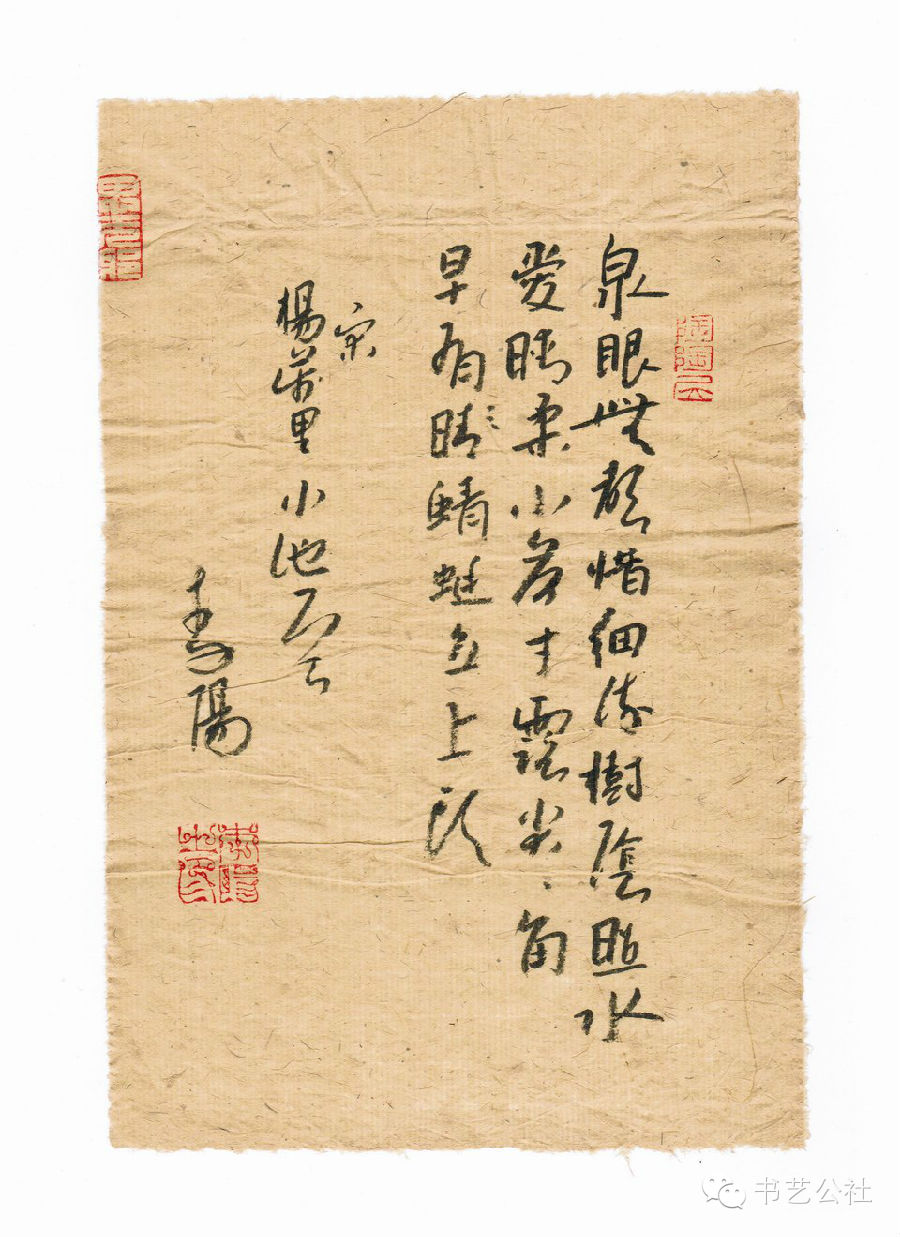 泉眼無聲惜細流樹陰照水
愛晴柔小荷才露尖、角
早有晴蜻蜓立上頭
宋
楊萬里小池
陽
书艺公社